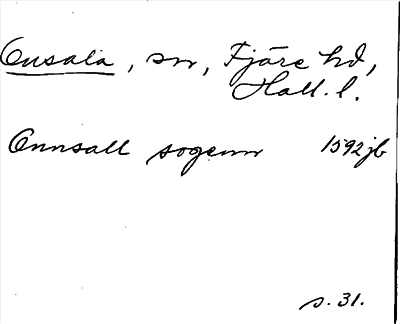 Onsala, sn, Fjäre hd,
Hall. l.
Onnsall sogenn 1592 jb
s. 31.